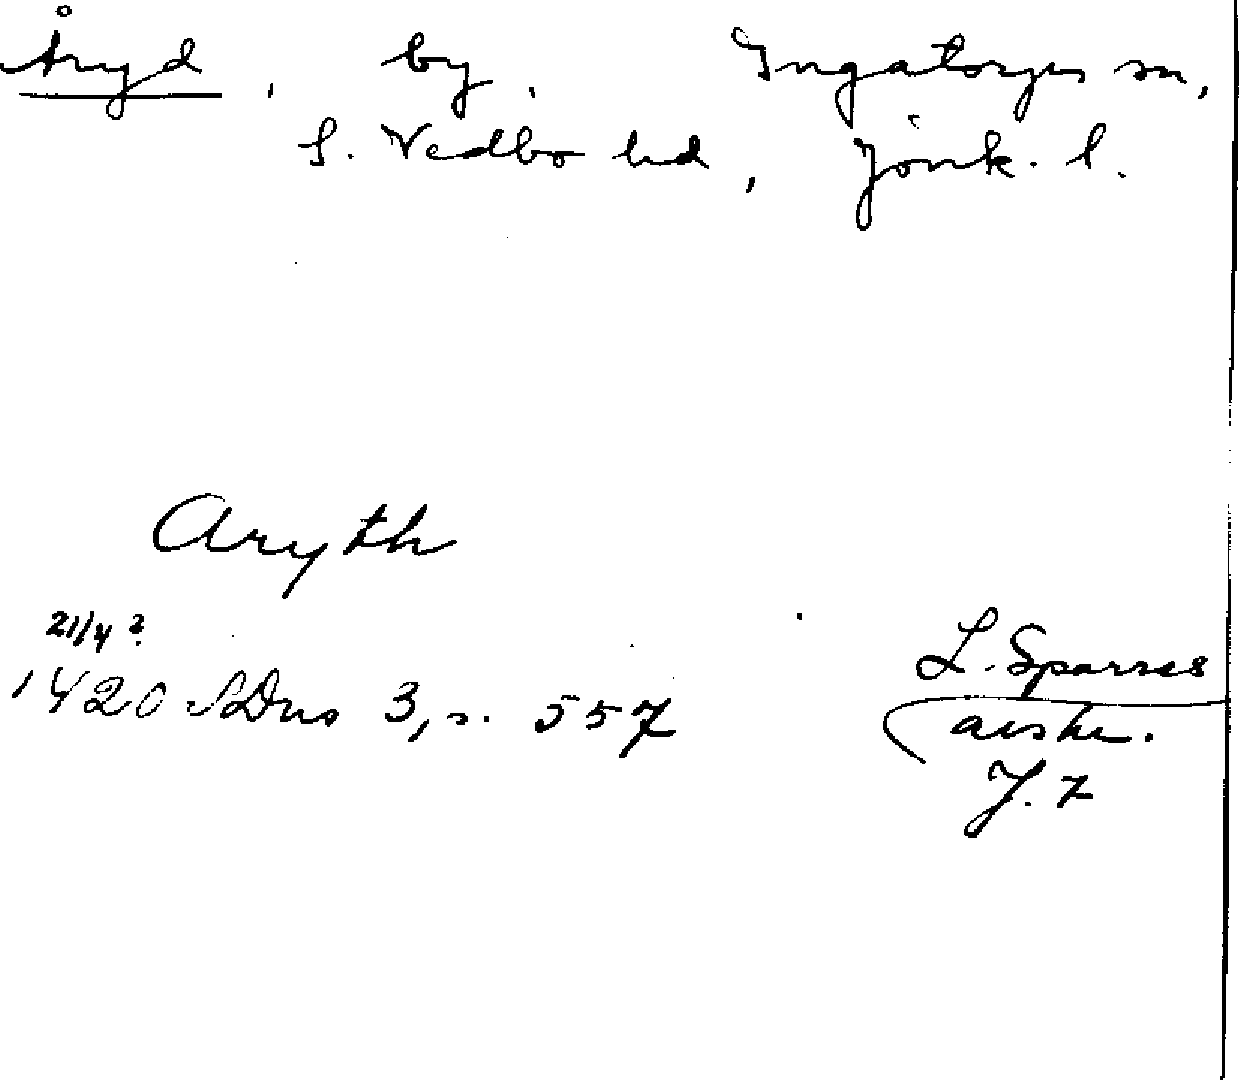 Åryd, by, Ingatorps sn,
S. Vedbo hd, Jönk. l.
Aryth
21/4 ?
1420 SDns 3, s. 557
L. Sparres
J. 7